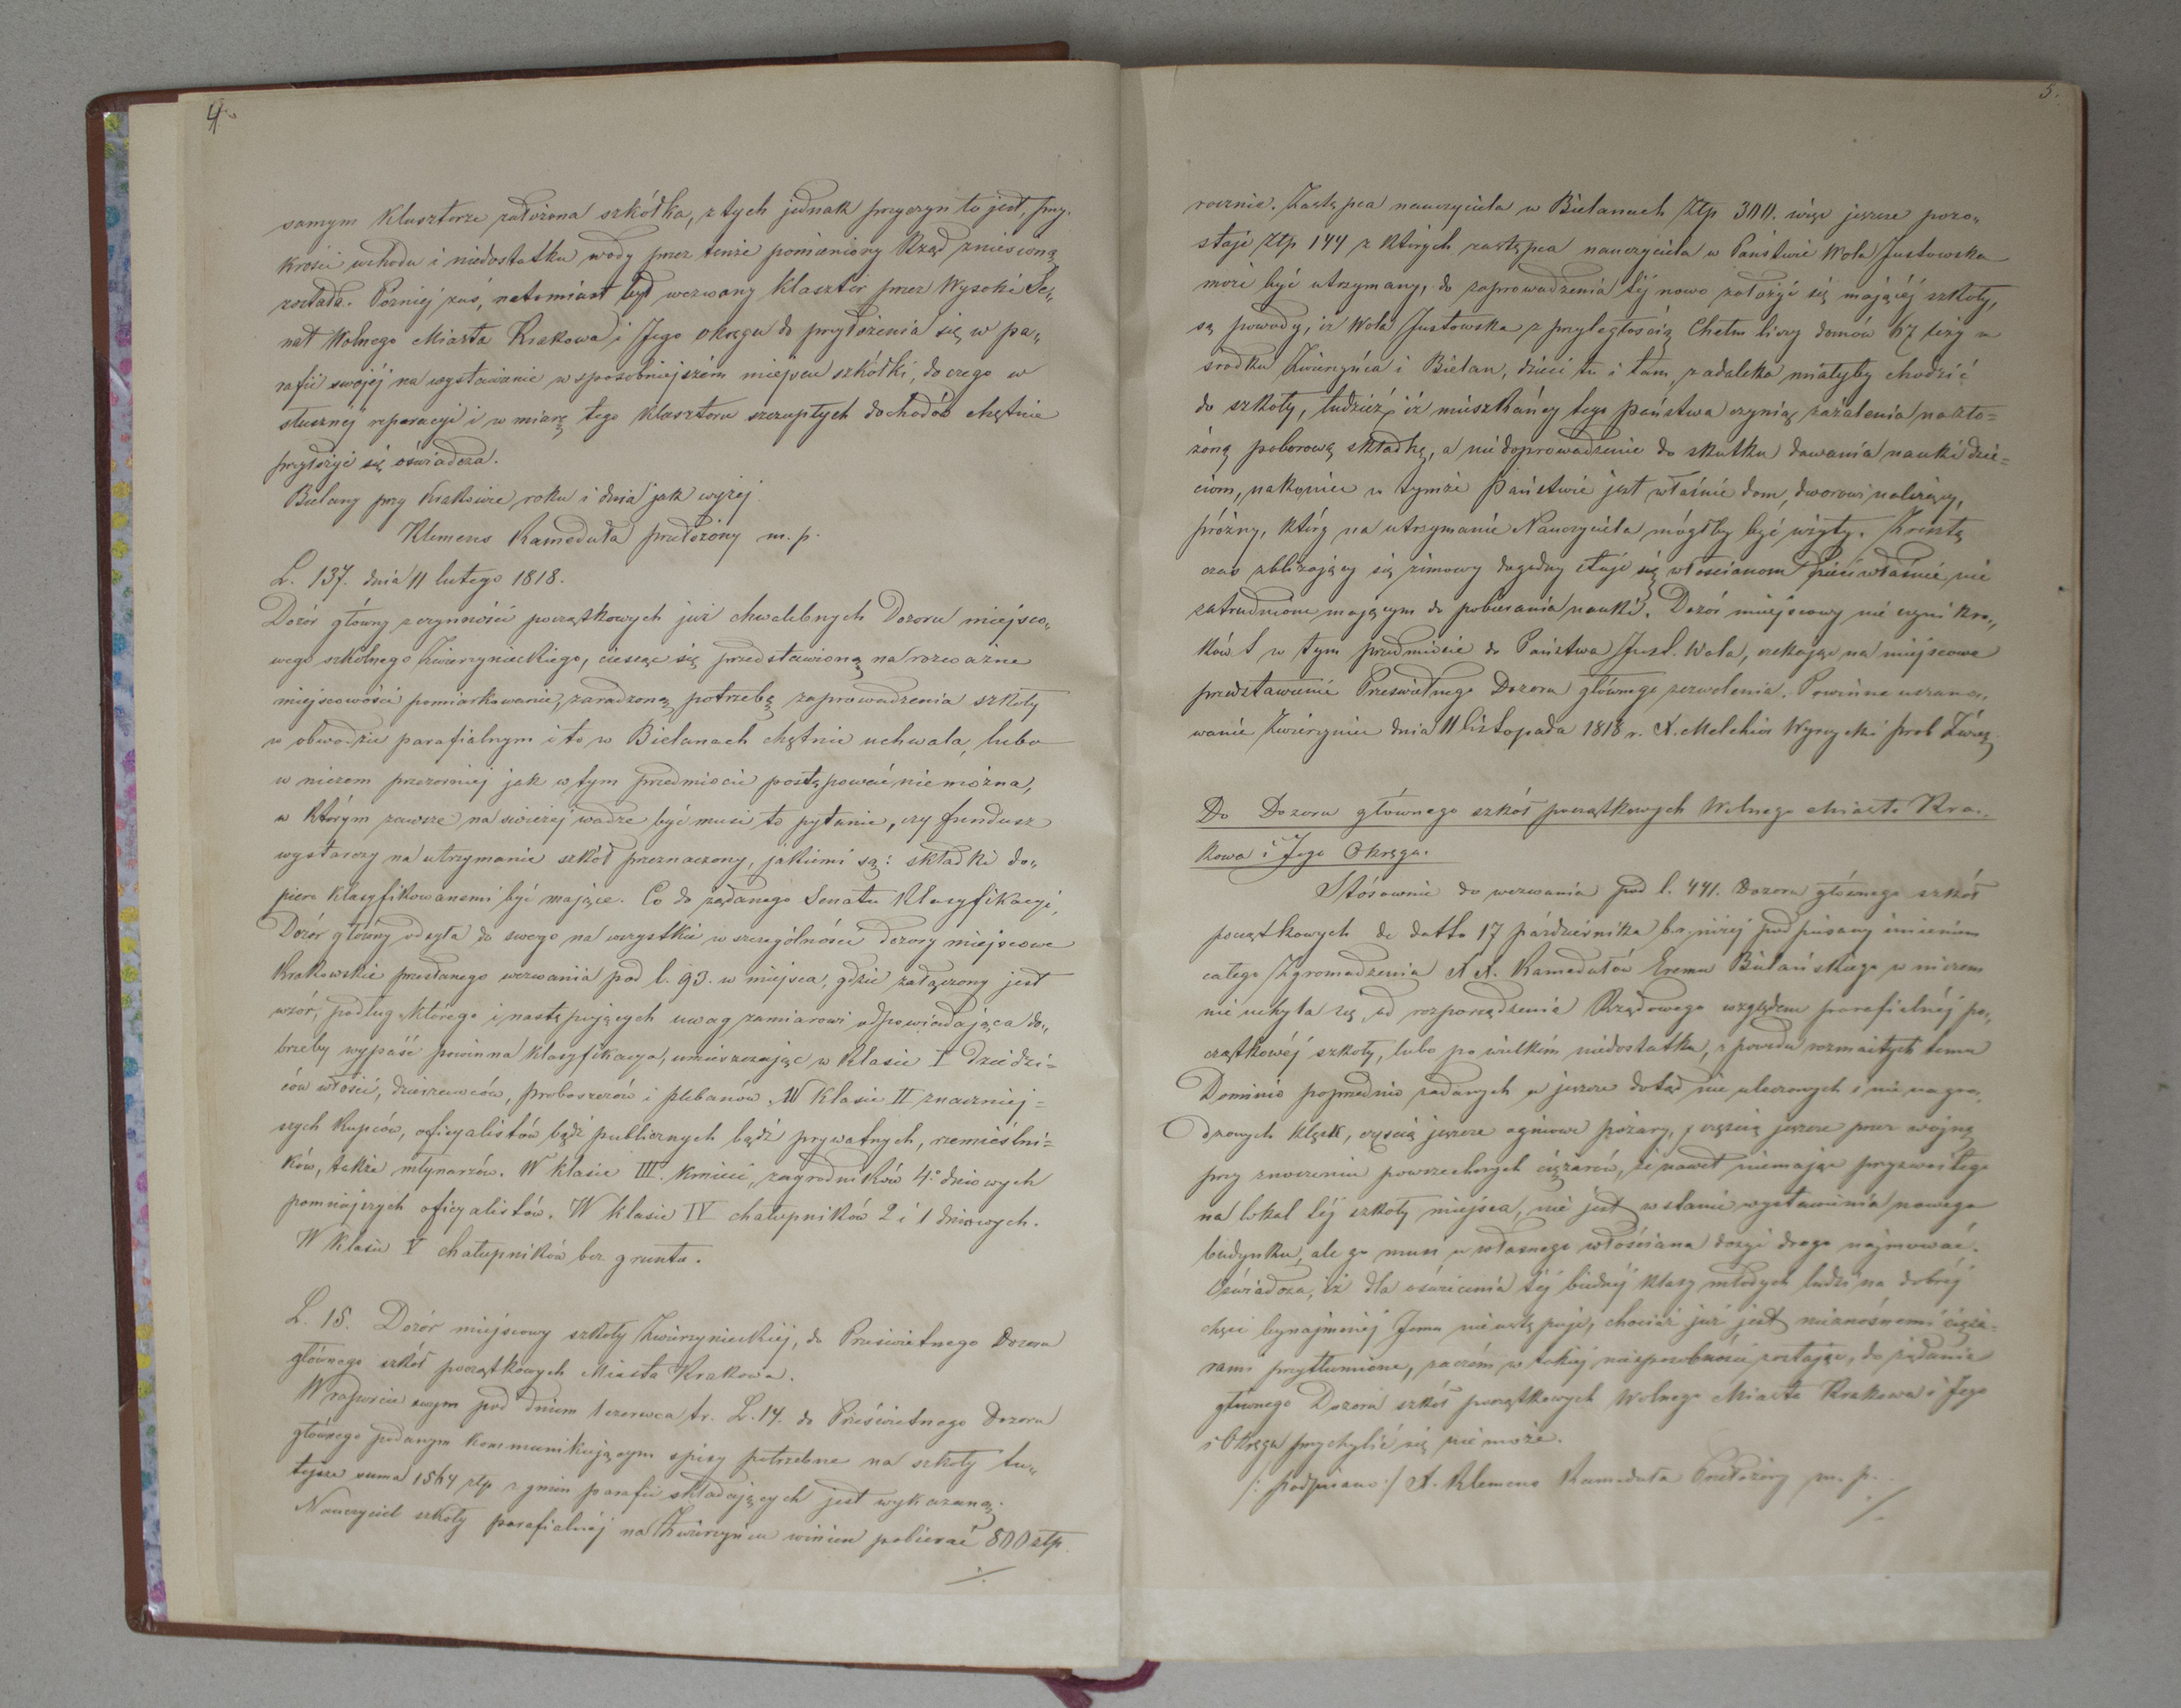 4.
samym Klasztorze założona szkółka, z tych jednak przyczyn to jest, przy„
krości wchodu i niedostatku wody przez tenże pomieniony Rząd zniesioną
została. Pózniej zaś, natomiast był wezwany Klasztór przez Wysoki Se„
nat Wolnego Miasta Krakowa i Jego okręgu do przyłożenia się w pa„
rafii swojéj na wystawienie w sposobniejszém miejscu szkółki, do czego w
słusznej reparacyi i w miarę tego Klasztoru szczupłych dochodów chętnie
przyłożyć się oświadcza.
Bielany przy Krakowie roku i dnia jak wyżej.
Klemens Kameduła przełożony m. p.
L. 137. dnia 11 lutego 1818.
Dozór główny z czynności początkowych już chwalebnych Dozoru miejsco„
wego szkolnego Zwierzynieckiego, ciesząc się przedstawioną na rozważne
miejscowości pomiarkowanie, zaradzoną potrzebą zaprowadzenia szkoły
w obwodzie parafialnym i to w Bielanach chętnie uchwala, lubo
w niczem przezorniej jak w tym przedmiocie postępować nie można,
w którym zawsze na świeżej wadze być musi to pytanie, czy fundusz
wystarczy na utrzymanie szkół przeznaczony, jakiemi są: składki do„
piero klasyfikowanemi być mające. Co do żądanego Senatu Klasyfikacyi,
Dozór główny odsyła do swego na wszystkie w szczególności dozory miejscowe
Krakowskie przesłanego wezwania pod l. 93. w miejsca, gdzie załączony jest
wzór, podług którego i następujących uwag zamiarowi odpowiadająca do„
brzeby wypaść powinna klasyfikacya, umieszczając w klasie I Dziedzi=
ców włości, dzierzawców, proboszczów i plebanów. W klasie II znaczniej=
szych kupców, oficyalistów bądź publicznych bądź prywatnych, rzemieślni=
ków, także młynarzów. W klasie III. kmieci, zagrodników 4o dniowych
pomniejszych oficyalistów. W klasie IV chałupników 2 i 1 dniowych.
W klasie V chałupników bez gruntu.
L. 15. Dozór miejscowy szkoły Zwierzynieckiéj, do Prześwietnego Dozoru
głównego szkół początkowych Miasta Krakowa.
W raporcie swym pod dniem 1 czerwca br. L. 14. do Prześwietnego Dozoru
głównego podanym kommunikującym spisy potrzebne na szkoły tu„
tejsze suma 1564 złp z gmin parafii składających jest wykazaną.
Nauczyciel szkoły parafialnéj na Zwierzyńcu winien pobierać 800 złp.
./.
5.
rocznie. Zastępca nauczyciela w Bielanach Złp 300. więc jeszcze pozo„
staje złp 144 z których zastępca nauczyciela w Państwie Wola Justowska
może być utrzymany, do zaprowadzenia téj nowo założyć się mającéj szkoły,
są powody, iż Wola Justowska z przyległością Chełm liczy domów 67 leży w
środku Zwierzyńca i Bielan, dzieci tu i tam zadaleko miałyby chodzić
do szkoły, tudzież, iż mieszkańcy tego państwa czynią zażalenia na zło=
żoną poborową składkę, a nie doprowadzenie do skutku dawania nauki dzie=
ciom, nakoniec w tymże Państwie jest właśnie dom, dworowi należący,
próżny, który na utrzymanie Nauczyciela mógłby być wzięty. Zresztą
czas zbliżający się zimowy dogodny staje się włościanom dzieci właśnie nie
zatrudnione mającym do pobierania nauki. Dozór miejscowy nie czyni kro„
ków w tym przedmiocie do Państwa Just. Wola, czekając na miejscowe
przedstawienie Prześwietnego Dozoru głównego zezwolenia. Powinne uszano„
wanie Zwierzyniec dnia 11 listopada 1818 r. X. Melchior Wyszycki prob Zwierz.
Do Dozoru głównego szkół początkowych Wolnego Miasta Kra„
kowa i Jego Okręgu.
Stósownie do wezwania pod l. 441. Dozoru głównego szkół
początkowych de datto 17 października b. r. niżej podpisany imieniem
całego Zgromadzenia XX. Kamedułów Eremu Bielańskiego w niczem
nie uchyla się od rozporządzenia Rządowego względem parafialnéj po„
czątkowéj szkoły, lubo po wielkim niedostatku, z powodu rozmaitych temu
Dominio poprzednio zadanych a jeszcze dotąd nie uleczonych i nie nagro„
dzonych klęsk, częścią jeszcze ogniowe pożary, częścią jeszcze przez wojnę
przy znoszeniu powszechnych ciężarów, że nawet niemając przyzwoitego
na lokal téj szkoły miejsca, nie jest w stanie wystawienia nowego
budynku, ale go musi u własnego włościana dosyć drogo najmować.
Oświadcza, iż dla oświecenia téj biednéj klasy młodych ludzi na dobréj
chęci bynajmniéj Jemu nie ustępuje, chociaż już jest nieznośnemi cięża„
rami przytłumione, zaczém w takiéj niesposobności zostając, do żądania
głównego Dozoru szkół początkowych Wolnego Miasta Krakowa i Jego
Okręgu przychylić się nie może.
/: podpisano :/ X. Klemens Kameduła Przełożony m. p.
./.